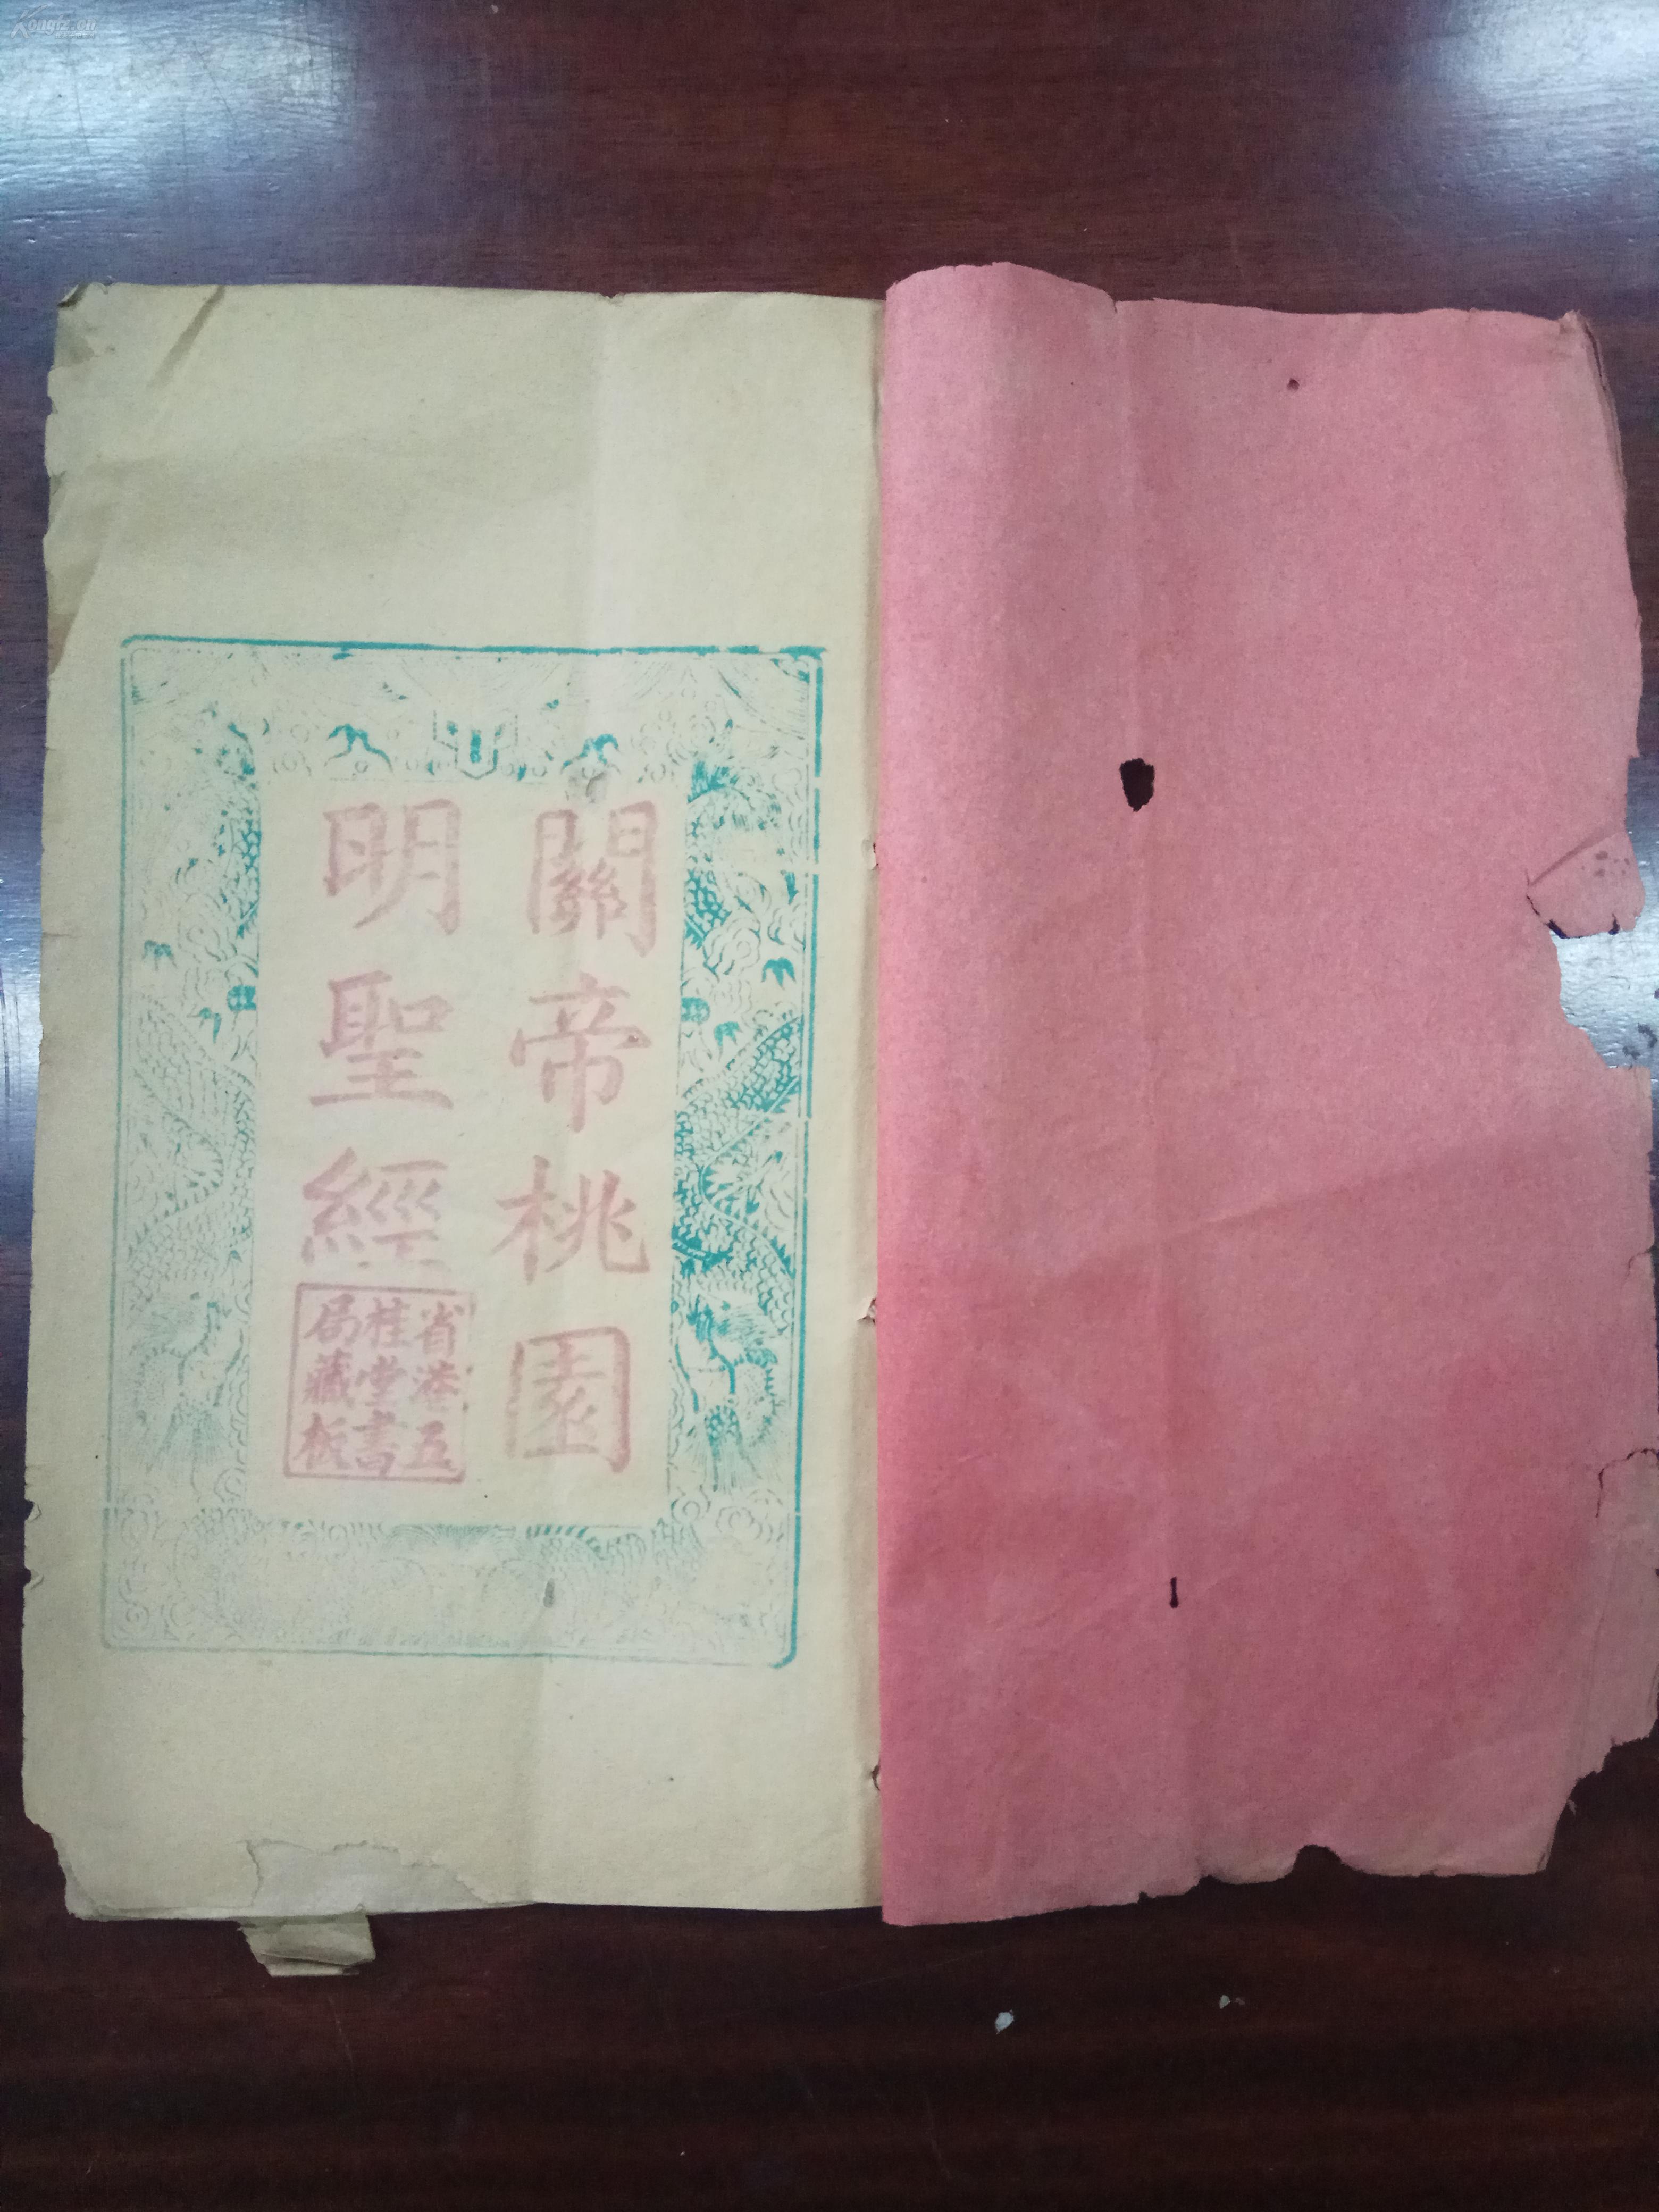 關帝桃園
明聖經
省港五
桂堂書
局藏板
Kongfz.cn